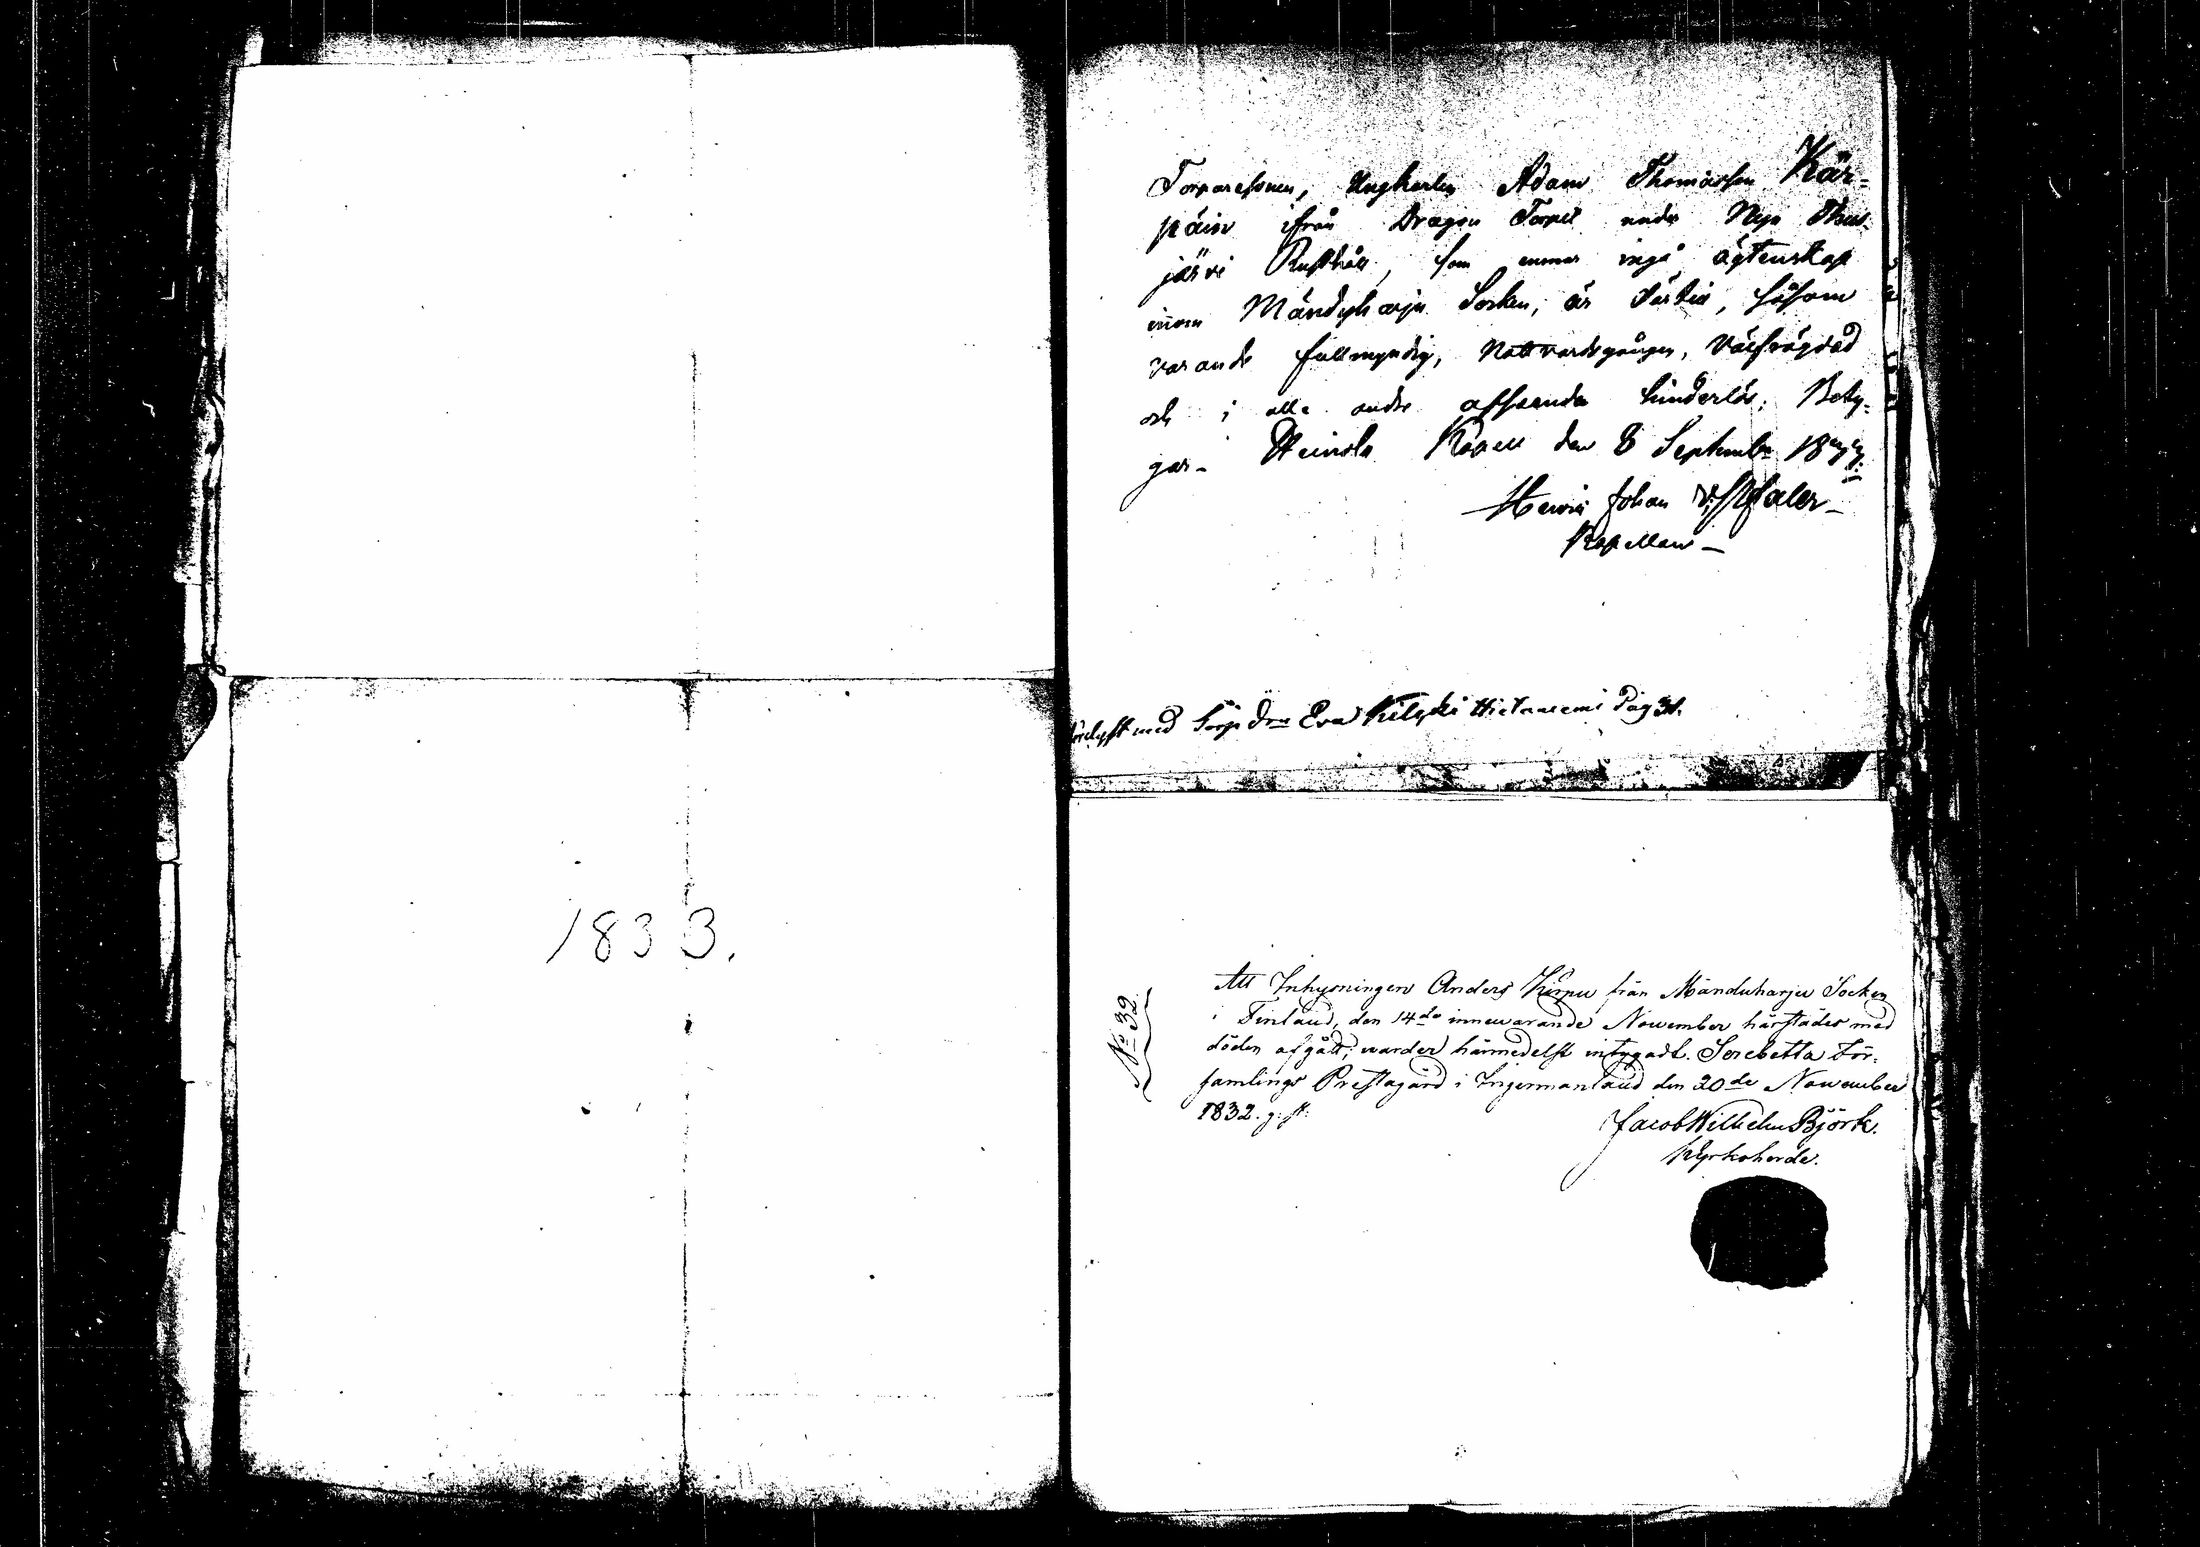 1833.
Torparesonen, Ungkarlen Adam Thomasson Kär-
päin ifrån Dragon Torpet under Nya
järvi Rusthåll, som ernar ingå ägtenskap
inom Mändyharju Socken, är dertil, såsom
varande fullmyndig, Nattvardsgången, Välfrägdad
och i alla andra afseenden hinderlös; Bety-
gar. Heinola Kapell den 8 September
Johan
Kapellan
med Eva Hietaniemi Pag 31.
No 32
Att Inhysningen Anders från Mänduharju Socken
i Finland, den 14de innewarande November härstädes med
döden afgått; warder härmedelst intygadt. Serebetta För-
samlings Prestagård i Ingermanland den 20de November
1832. g. st.
Jacob Wilhelm Björk.
Kyrkoherde.